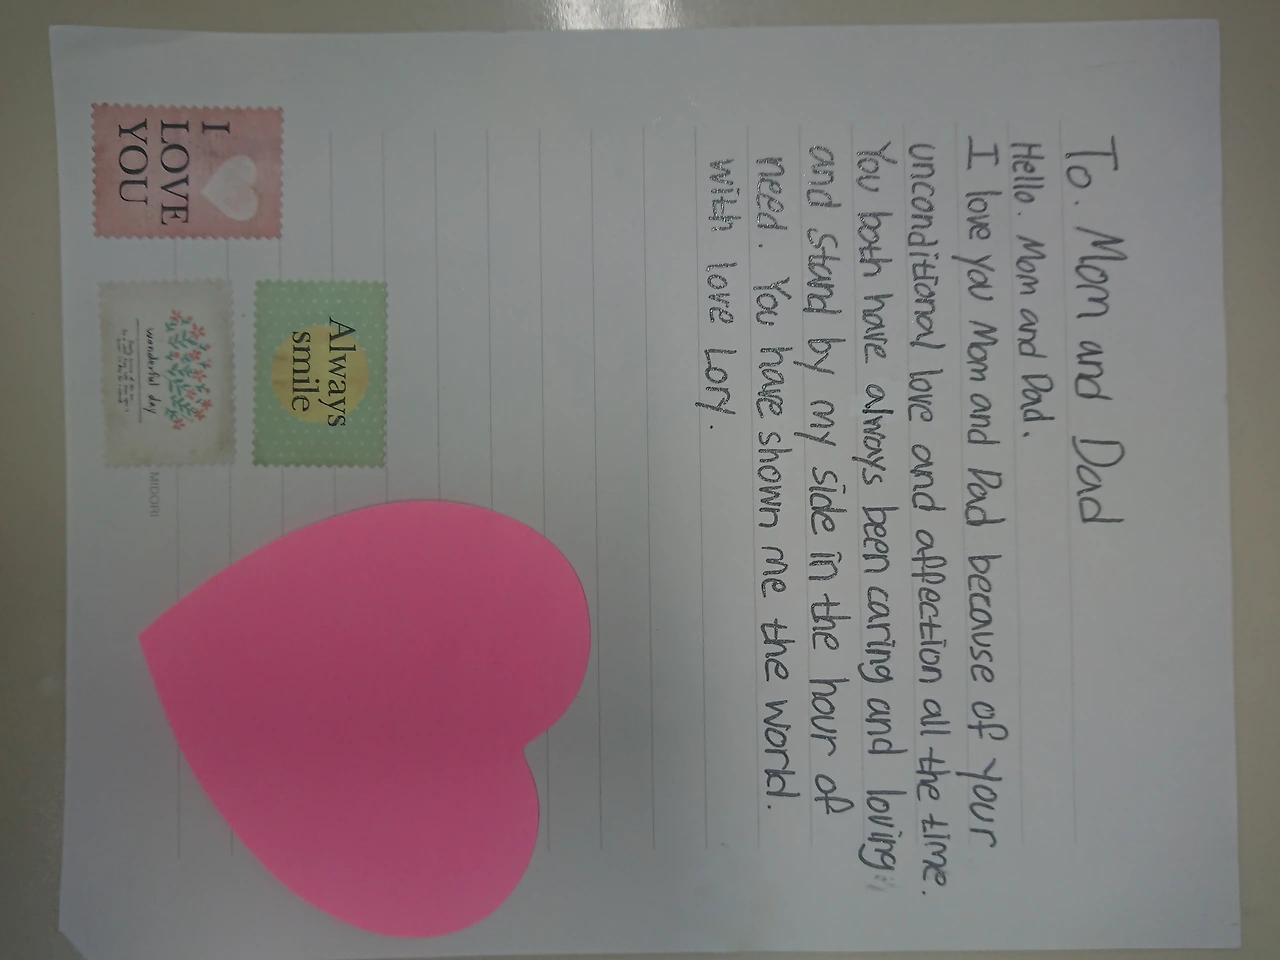 To. Mom and Dad
Hello. Mom and Dad.
I love you Mom and Dad because of your
unconditional love and affection all the time.
You both have always been caring and loving
and stand by my side in the hour of
need. You have shown me the world.
with love Lory.
Always
smile
I
LOVE
YOU
wonderful day
MIDORI